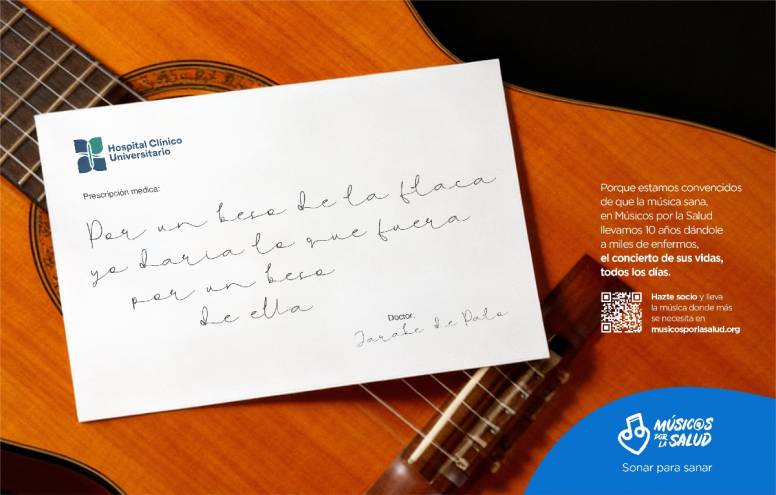 Hospital Clínico
Universitario
Prescripción médica:
Por un beso de la flaca
yo daría lo que fuera
por un beso
de ella
Doctor:
Jarabe de Palo
Porque estamos convencidos
de que la música sana,
en Músicos por la Salud
llevamos 10 años dándole
a miles de enfermos,
el concierto de sus vidas,
todos los días.
Hazte socio y lleva
la música donde más
se necesita en
musicosporlasalud.org
MÚSIC@S
POR
LA SALUD
Sonar para sanar